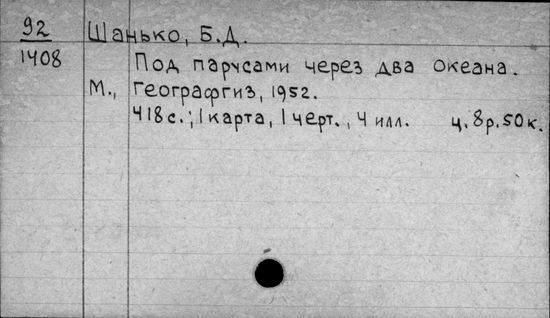 92 Шанько, Б.Д.
1408 Под парусами через два океана.
М., Географгиз, 1952.
418 с.; 1 карта, 1 черт., 4 илл. ц. 8 р. 50 к.